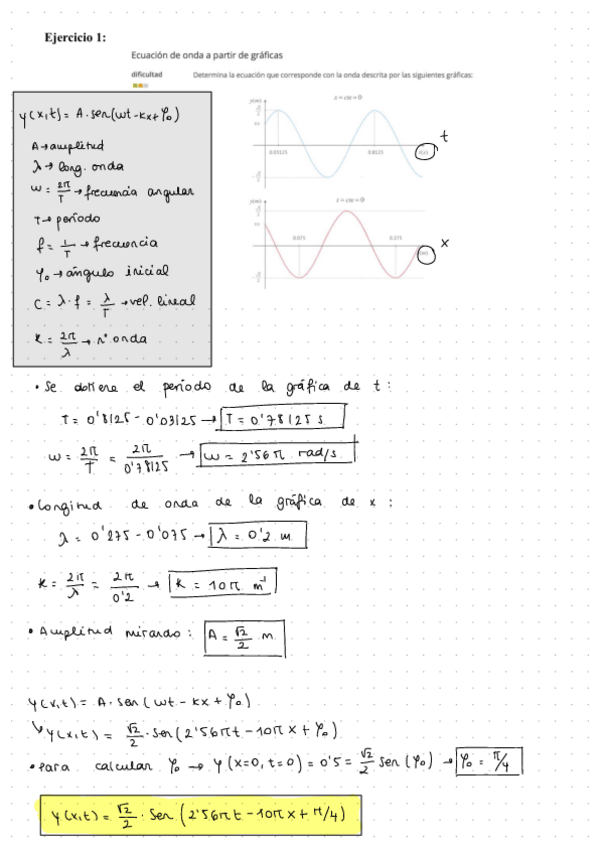 Ejercicio 1:
Ecuación de onda a partir de gráficas
dificultad
Determina la ecuación que corresponde con la onda descrita por las siguientes gráficas:
y(x,t) = A·sen(wt-kx+φ₀)
A→amplitud
λ→ long. onda
w = 2π/T → frecuencia angular
T→ período
f = 1/T → frecuencia
φ₀ → ángulo inicial
C = λ·f = λ/T → vel. lineal
k = 2π/λ → nº onda
y(m)
x = cte = 0
0.03125
0.8125
t(s)
t
y(m)
t = cte = 0
0.075
0.275
x(m)
x
• Se obtiene el período de la gráfica de t:
T = 0'8125 - 0'03125 → T = 0'78125 s
w = 2π/T = 2π/0'78125 → w = 2'56π rad/s
• Longitud de onda de la gráfica de x:
λ = 0'275 - 0'075 → λ = 0'2 m
k = 2π/λ = 2π/0'2 → k = 10π m⁻¹
• Amplitud mirando: A = √2/2 m
y(x,t) = A·sen(wt - kx + φ₀)
↳ y(x,t) = √2/2 · sen(2'56πt - 10πx + φ₀)
• Para calcular φ₀ → y(x=0, t=0) = 0'5 = √2/2 sen(φ₀) → φ₀ = π/4
y(x,t) = √2/2 · sen(2'56πt - 10πx + π/4)